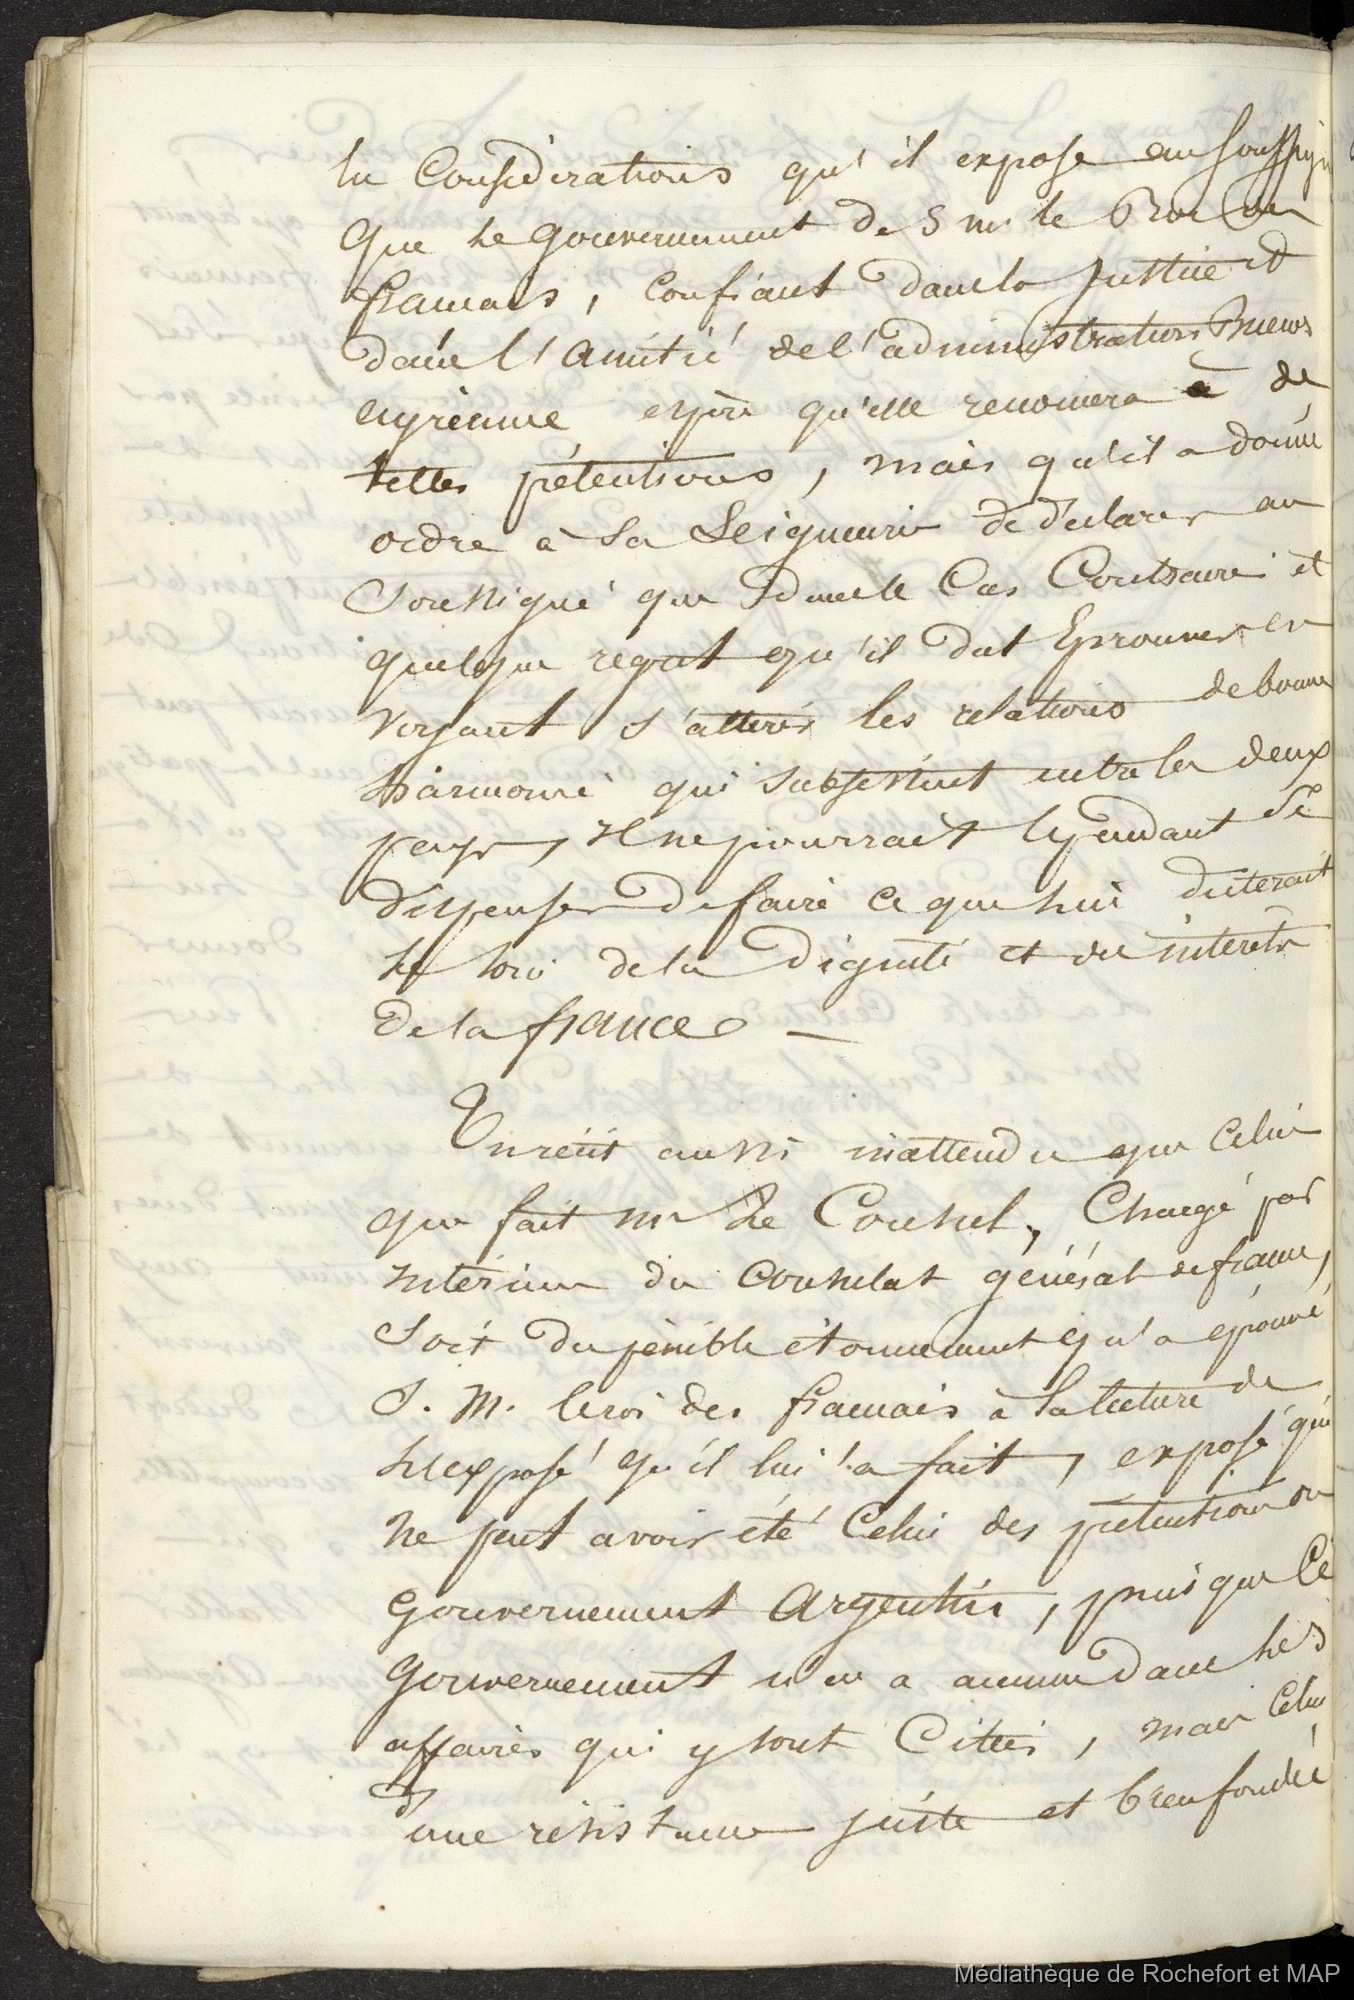 les Considérations qu'il expose au Soussigné
que le gouvernement de S m. le Roi des
francais, confiant dans la Justice et
dans l'amitié de l'administration Buenos
ayrienne espère qu'elle renoncera à de
telles prétentions, mais qu'il a donné
ordre à Sa Seigneurie de déclarer au
Soussigné que dans le Cas Contraire et
quelque regret qu'il dut Eprouver en
voyant s'altérer les relations de bonne
harmonie qui subsistent entre les deux
pays, il ne pourrait Cependant Se
dispenser de faire ce que lui dicterait
le soin de la Dignité et des intérêts
de la france —
Un récit aussi inattendu que Celui
que fait mr Le Consul, Chargé par
interim du Consulat général de france,
Soit du pénible étonnement qu'a éprouvé
S. M. le roi des francais à la lecture de
l'exposé qu'il lui a fait, exposé qui
ne peut avoir été Celui des prétentions du
gouvernement Argentin, puisque Ce
gouvernement n'en a aucune dans les
affaires qui y sont Citées, mais Celui
d'une résistance juste et bien fondée
Médiathèque de Rochefort et MAP